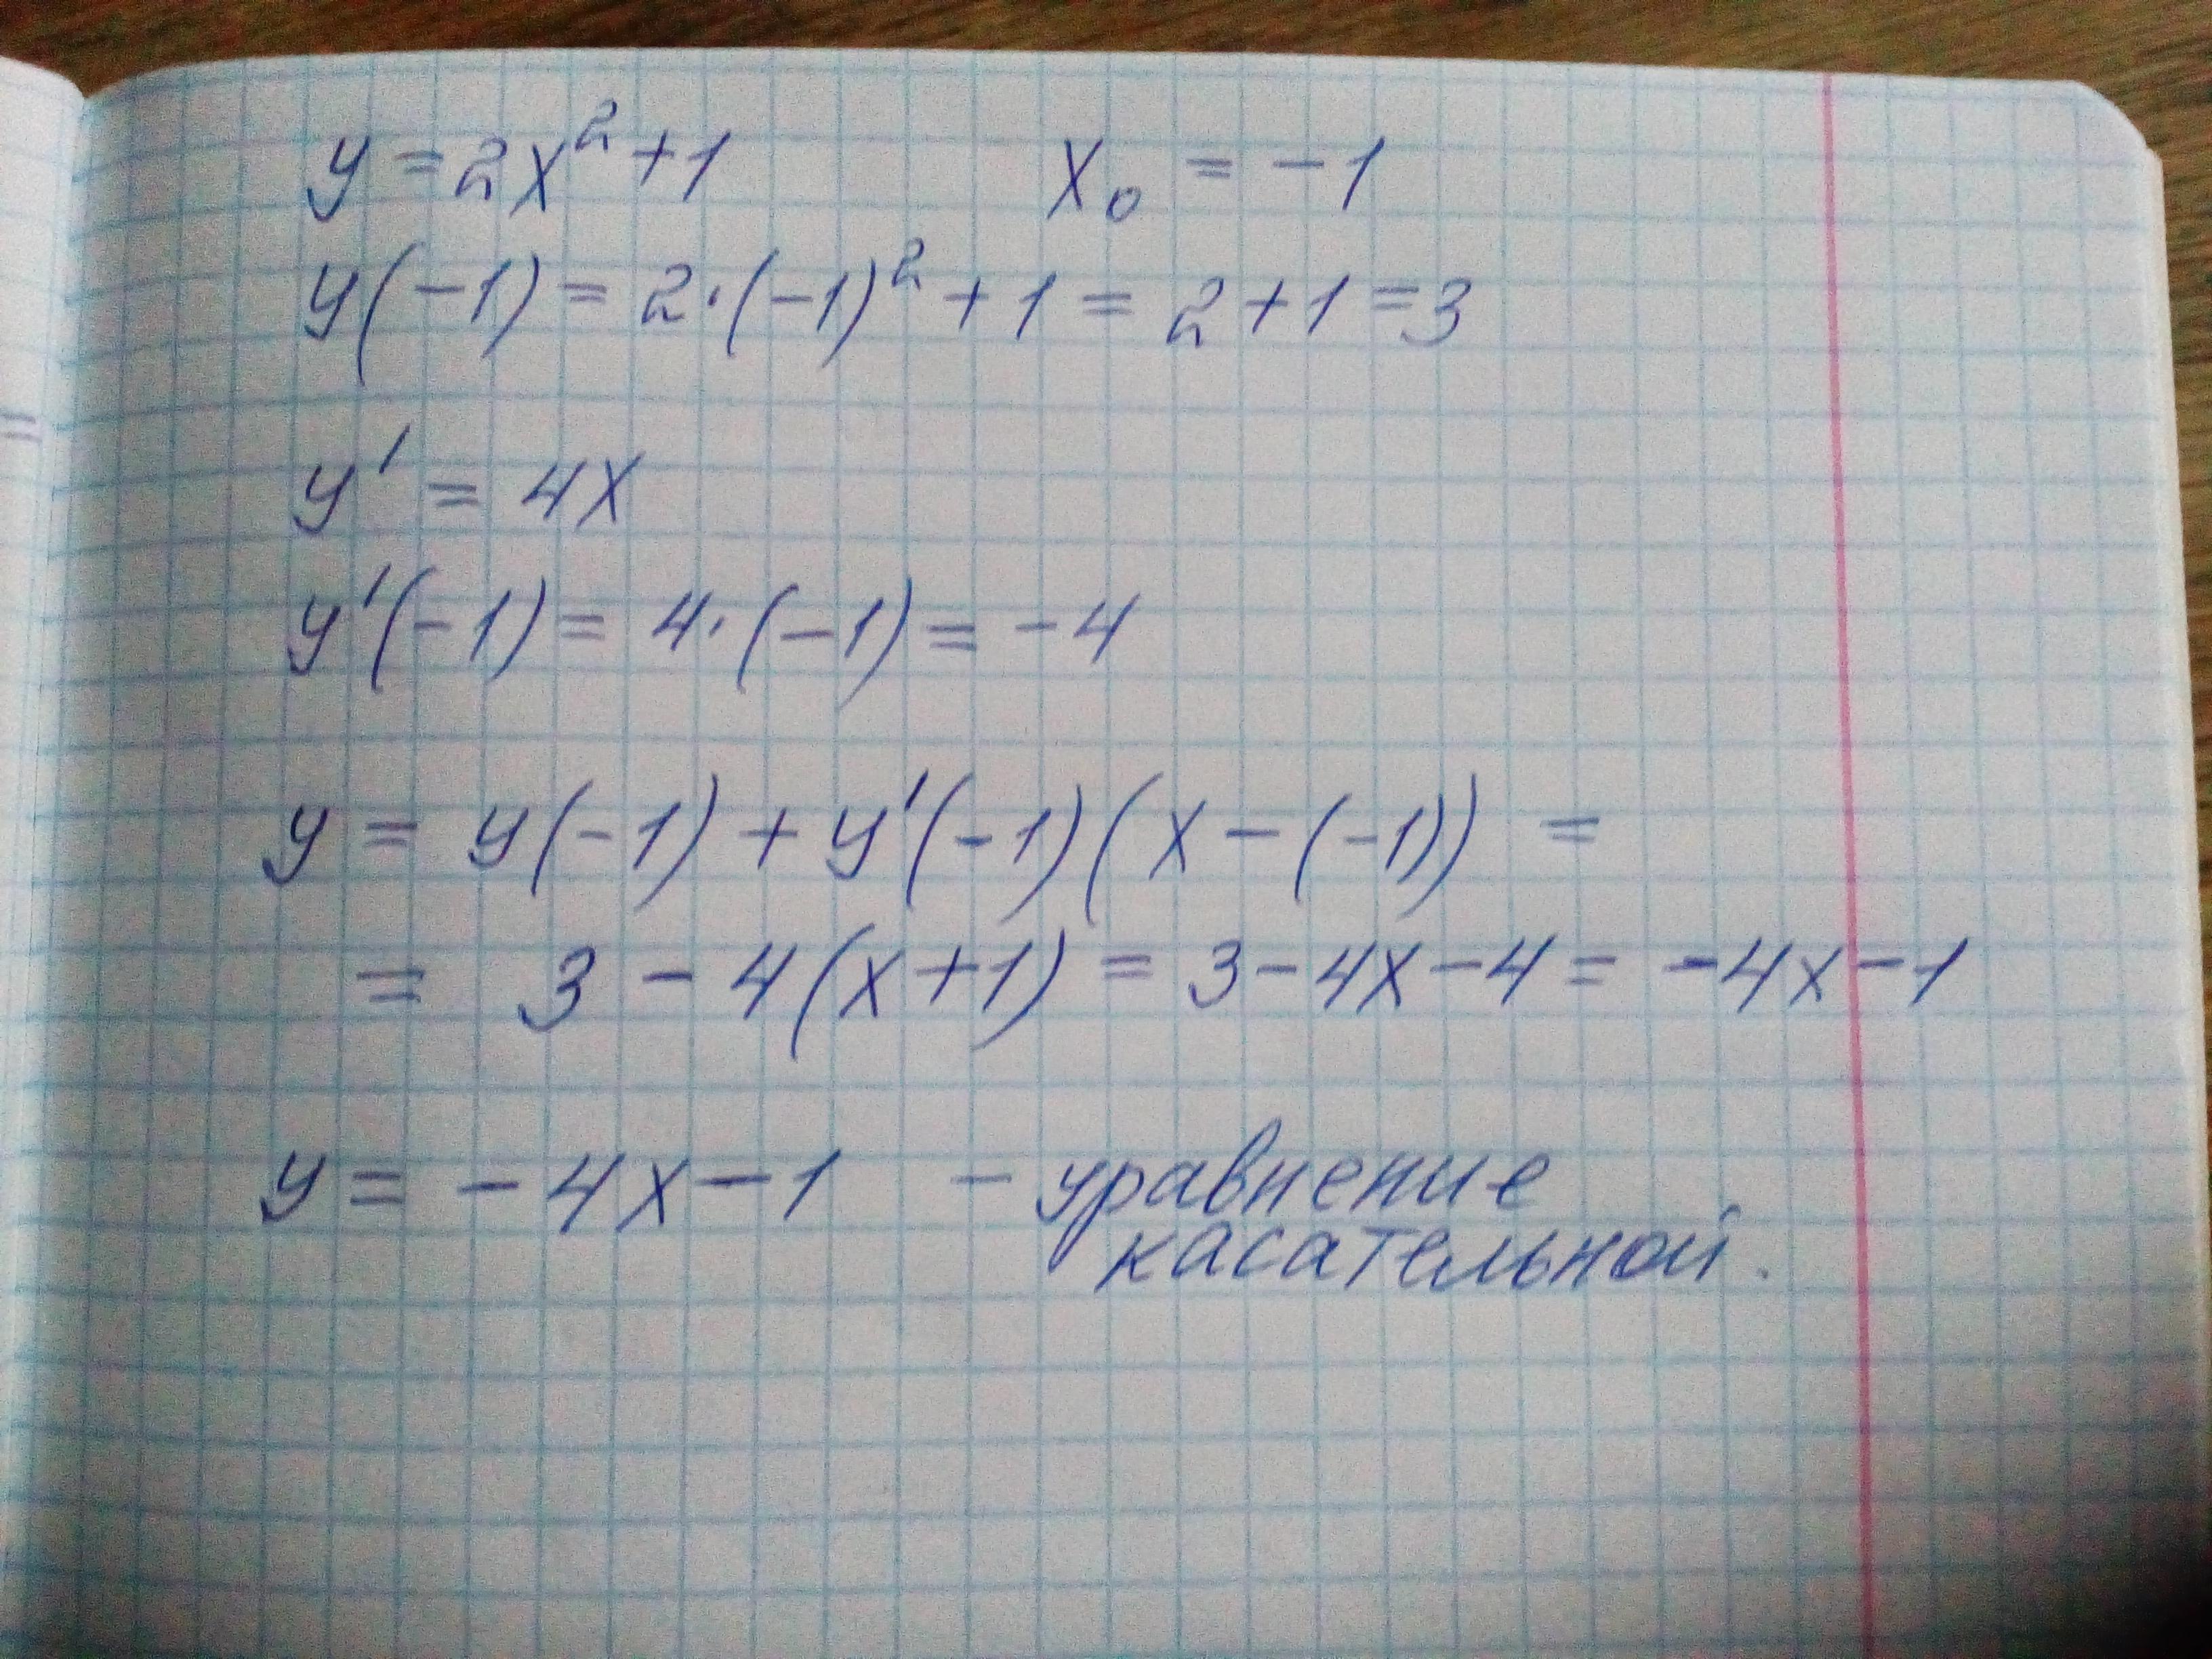 y = 2x² + 1 x₀ = -1
y(-1) = 2·(-1)² + 1 = 2 + 1 = 3
y' = 4x
y'(-1) = 4·(-1) = -4
y = y(-1) + y'(-1)(x - (-1)) =
= 3 - 4(x + 1) = 3 - 4x - 4 = -4x - 1
y = -4x - 1 - уравнение
касательной.
=